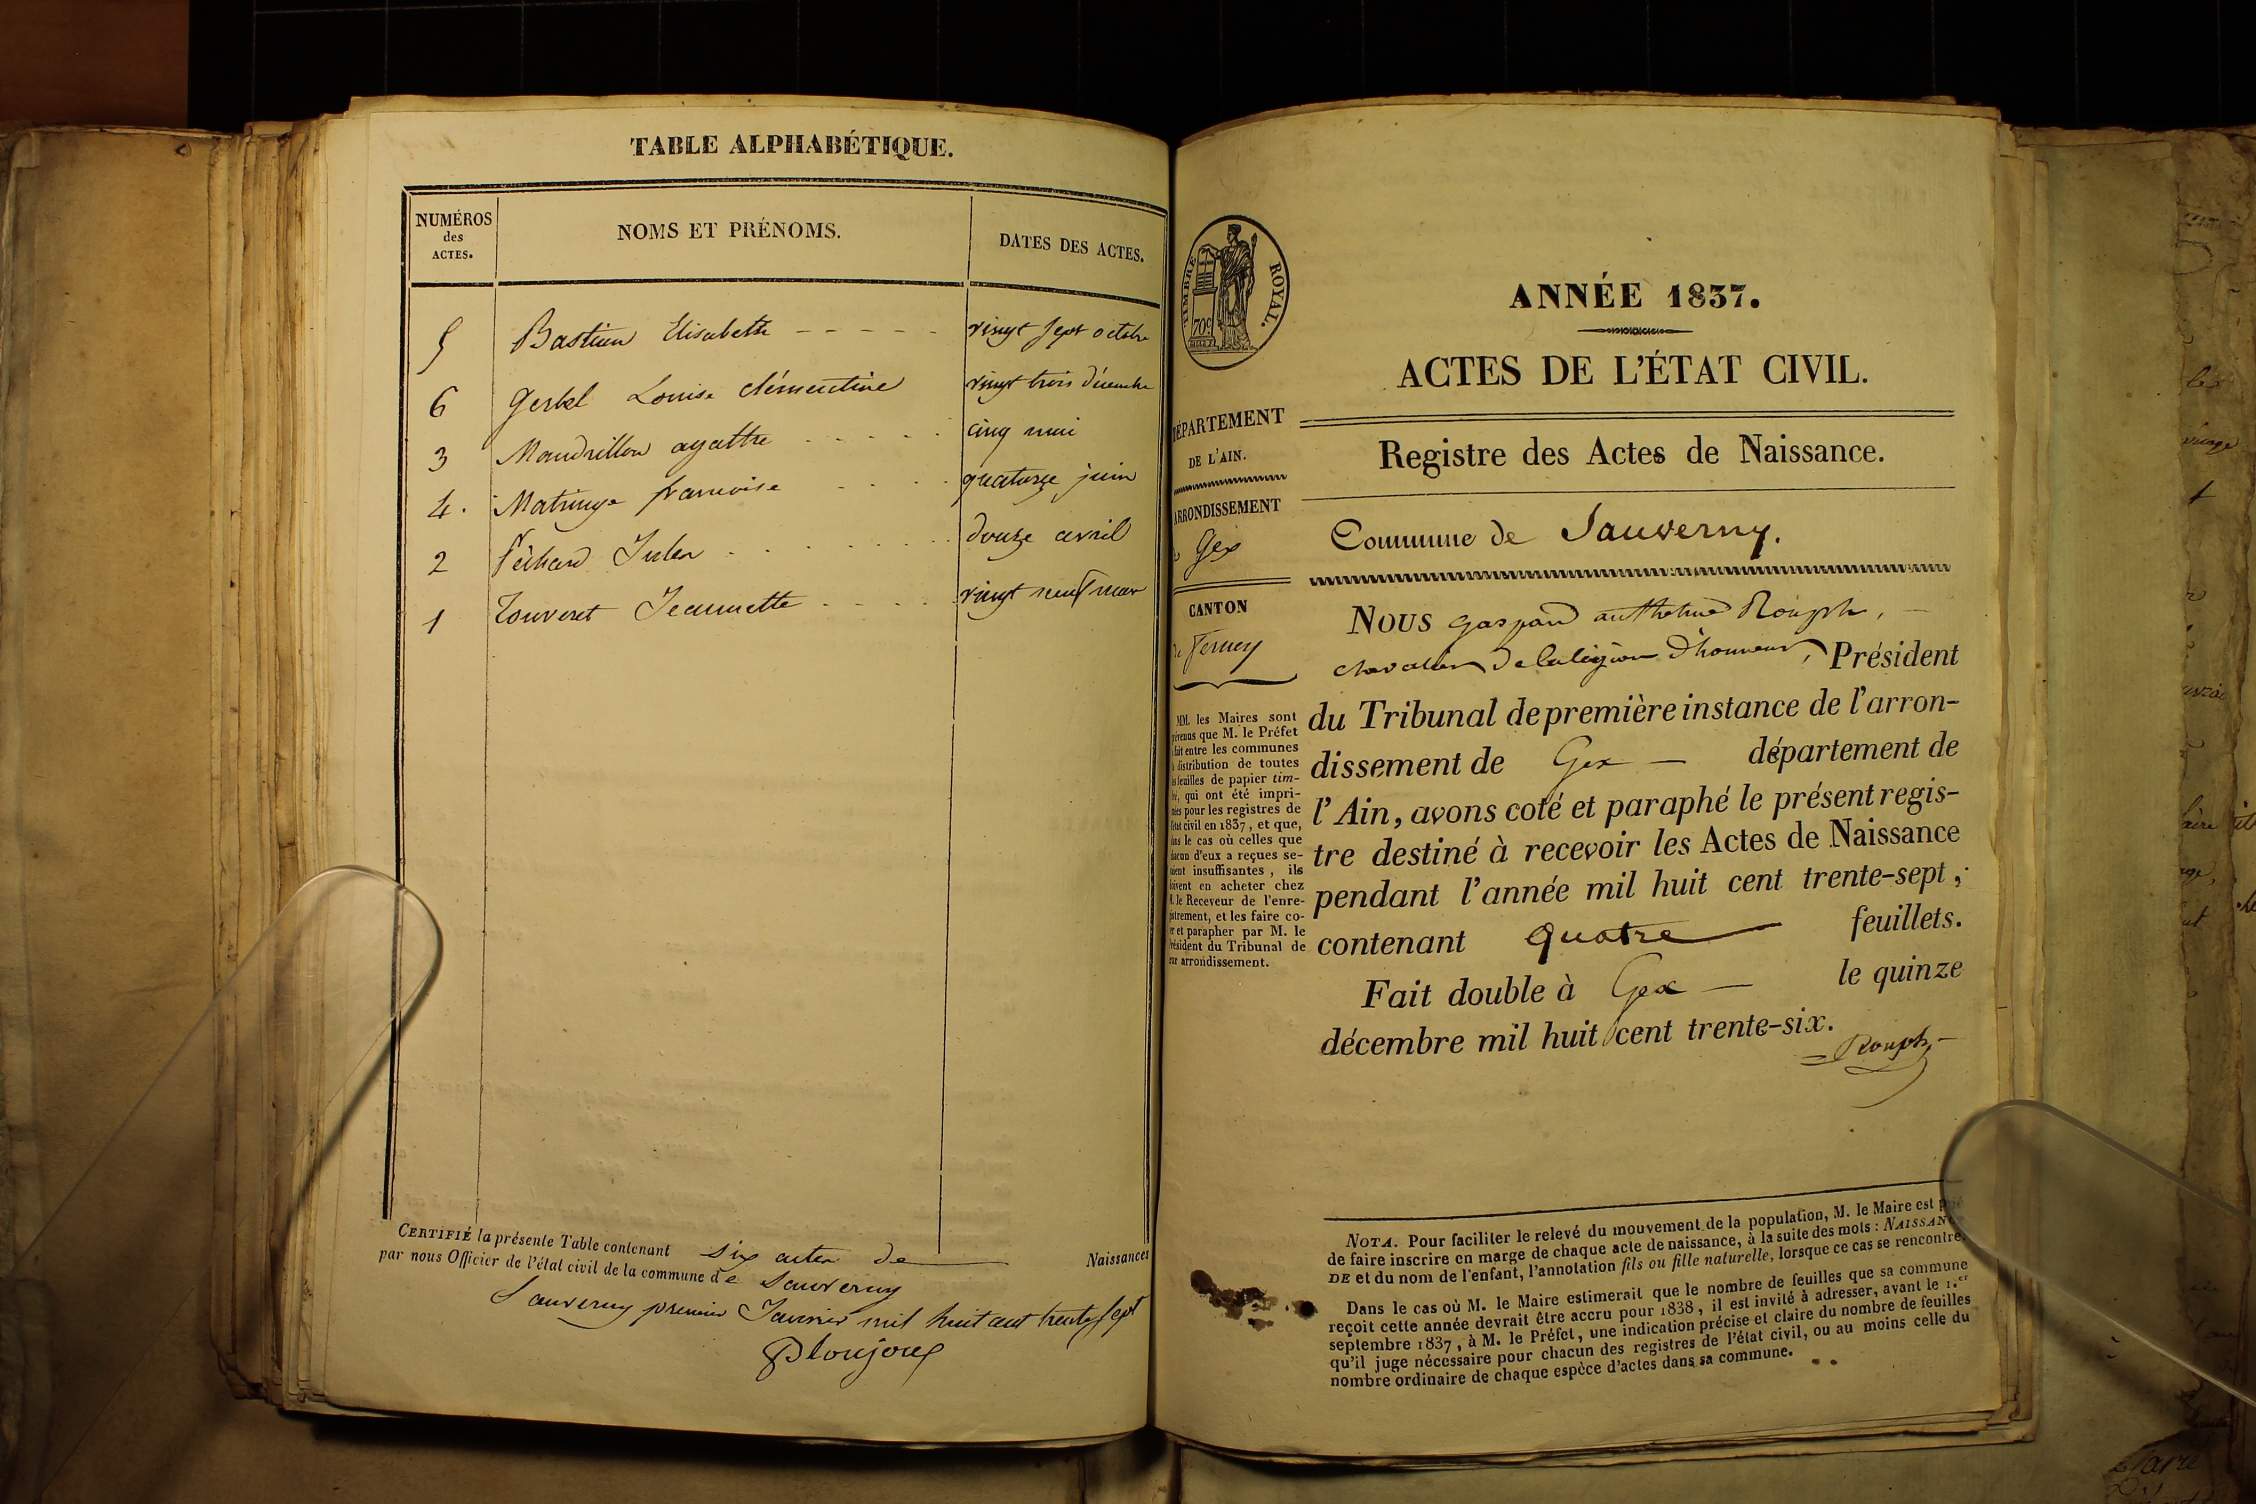 TABLE ALPHABÉTIQUE.
NUMÉROS
des
ACTES.
NOMS ET PRÉNOMS.
DATES DES ACTES.
5 Bastian Elisabeth - - - - - vingt sept octobre
6 Gerbel Louise clémentine vingt trois décembre
3 Mandrillon agathe . . . . . cinq mai
4. Matringe francoise . . . . quatorze juin
2 Péchard Jules . . . . . . . douze avril
1 Touveret Jeannette . . . . vingt neuf mars
CERTIFIÉ la présente Table contenant six actes de Naissances
par nous Officier de l'état civil de la commune de Sauverny
Sauverny premier Janvier mil huit cent trente sept
TIMBRE ROYAL.
70c
ANNÉE 1837.
ACTES DE L'ÉTAT CIVIL.
DÉPARTEMENT
DE L'AIN.
ARRONDISSEMENT
Gex
CANTON
de Ferney
MM. les Maires sont
prévenus que M. le Préfet
fait entre les communes
distribution de toutes
feuilles de papier tim-
bré, qui ont été impri-
mées pour les registres de
l'état civil en 1837, et que,
dans le cas où celles que
chacun d'eux a reçues se-
raient insuffisantes, ils
doivent en acheter chez
M. le Receveur de l'enre-
gistrement, et les faire co-
ter et parapher par M. le
Président du Tribunal de
leur arrondissement.
Registre des Actes de Naissance.
Commune de Sauverny.
NOUS Gaspard anthelme Rouph,
chevalier De la légion D'honneur, Président
du Tribunal de première instance de l'arron-
dissement de Gex — département de
l'Ain, avons coté et paraphé le présent regis-
tre destiné à recevoir les Actes de Naissance
pendant l'année mil huit cent trente-sept,
contenant quatre feuillets.
Fait double à Gex — le quinze
décembre mil huit cent trente-six.
Rouph
NOTA. Pour faciliter le relevé du mouvement de la population, M. le Maire est prié
de faire inscrire en marge de chaque acte de naissance, à la suite des mots : NAISSANCE
DE et du nom de l'enfant, l'annotation fils ou fille naturelle, lorsque ce cas se rencontre.
Dans le cas où M. le Maire estimerait que le nombre de feuilles que sa commune
reçoit cette année devrait être accru pour 1838, il est invité à adresser, avant le 1.er
septembre 1837, à M. le Préfet, une indication précise et claire du nombre de feuilles
qu'il juge nécessaire pour chacun des registres de l'état civil, ou au moins celle du
nombre ordinaire de chaque espèce d'actes dans sa commune.